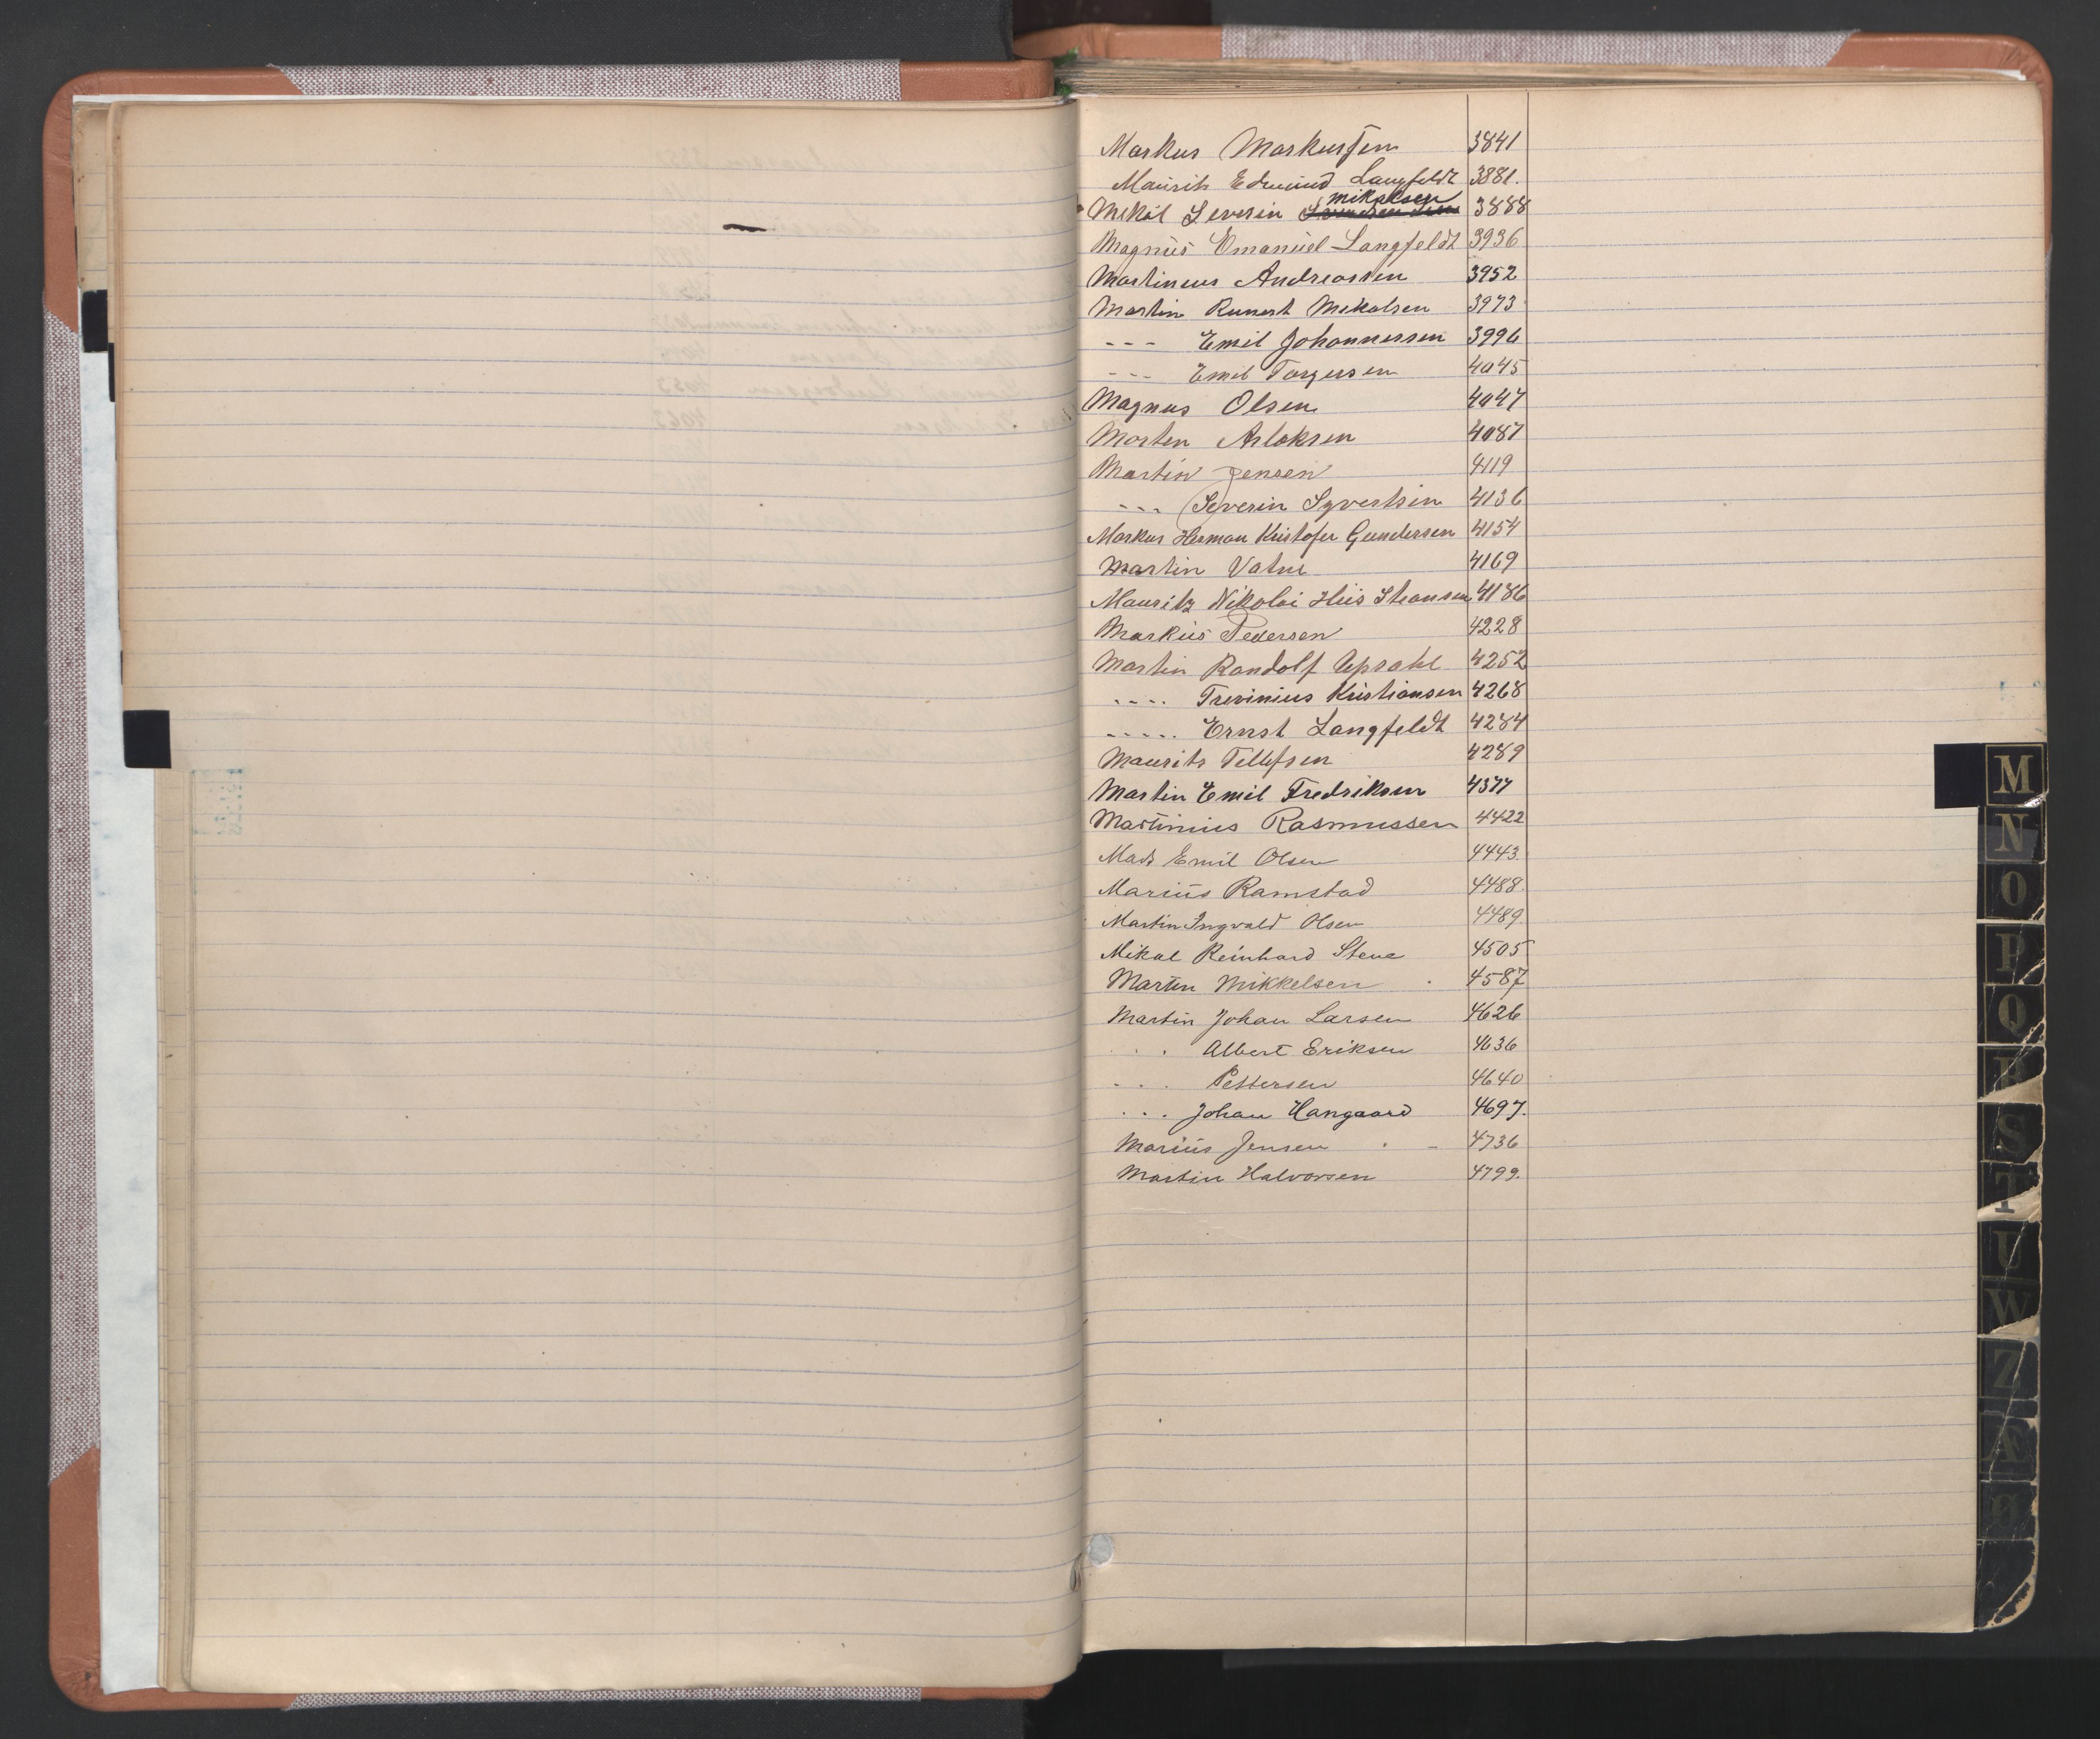 Markus Markussen 3841
Maurits Edmund Langfeldt 3881.
Mikal Severin Mikalsen 3888
Magnus Emanuel Langfeldt 3936
Martineus Andreassen 3952
Martin Runert Mikalsen 3973
--- Emil Johannessen 3996
--- Emil Torgersen 4045
Magnus Olsen 4047
Morten Aslaksen 4087
Martin Jensen 4119
--- Severin Syvertsen 4136
Markus Herman Kristofer Gundersen 4154
Martin Vatne 4169
Mauritz Nikolai Hiis Steansen 4186
Markus Pedersen 4228
Martin Randolf Upsahl 4252
---- Trevinius Kristiansen 4268
----- Ernst Langfeldt 4284
Maurits Tellefsen 4289
Martin Emil Fredriksen 4377
Martinius Rasmussen 4422
Mads Emil Olsen 4443.
Marius Ramstad 4488.
Martin Ingvald Olsen 4489.
Mikal Reinhard Stene 4505
Martin Mikkelsen 4587
Martin Johan Larsen 4626
... Albert Eriksen 4636
... Pettersen 4640
... Johan Hangaard 4697.
Marius Jensen 4736
Martin Halvorsen 4799.
M
N
O
P
Q
R
S
T
U
W
Z
Æ
Ø